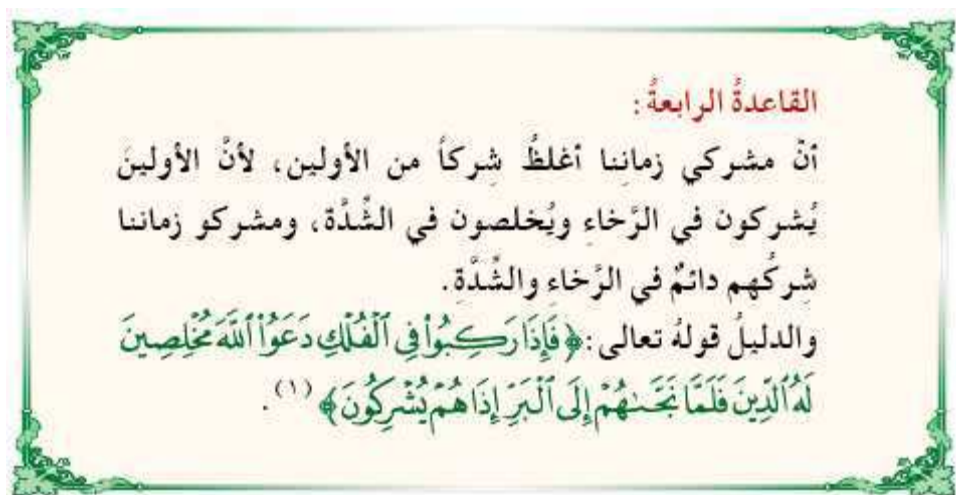 القاعدةُ الرابعةُ:
أنّ مشركي زماننا أغلظُ شركاً من الأولين، لأنَّ الأولينَ
يُشركون في الرَّخاءِ ويُخلصون في الشِّدَّة، ومشركو زماننا
شركُهم دائمٌ في الرَّخاء والشِّدَّةِ.
والدليلُ قولهُ تعالى: ﴿فَإِذَا رَكِبُواْ فِي ٱلْفُلْكِ دَعَوُاْ ٱللَّهَ مُخْلِصِينَ
لَهُ ٱلدِّينَ فَلَمَّا نَجَّىٰهُمْ إِلَى ٱلْبَرِّ إِذَا هُمْ يُشْرِكُونَ﴾ (١).